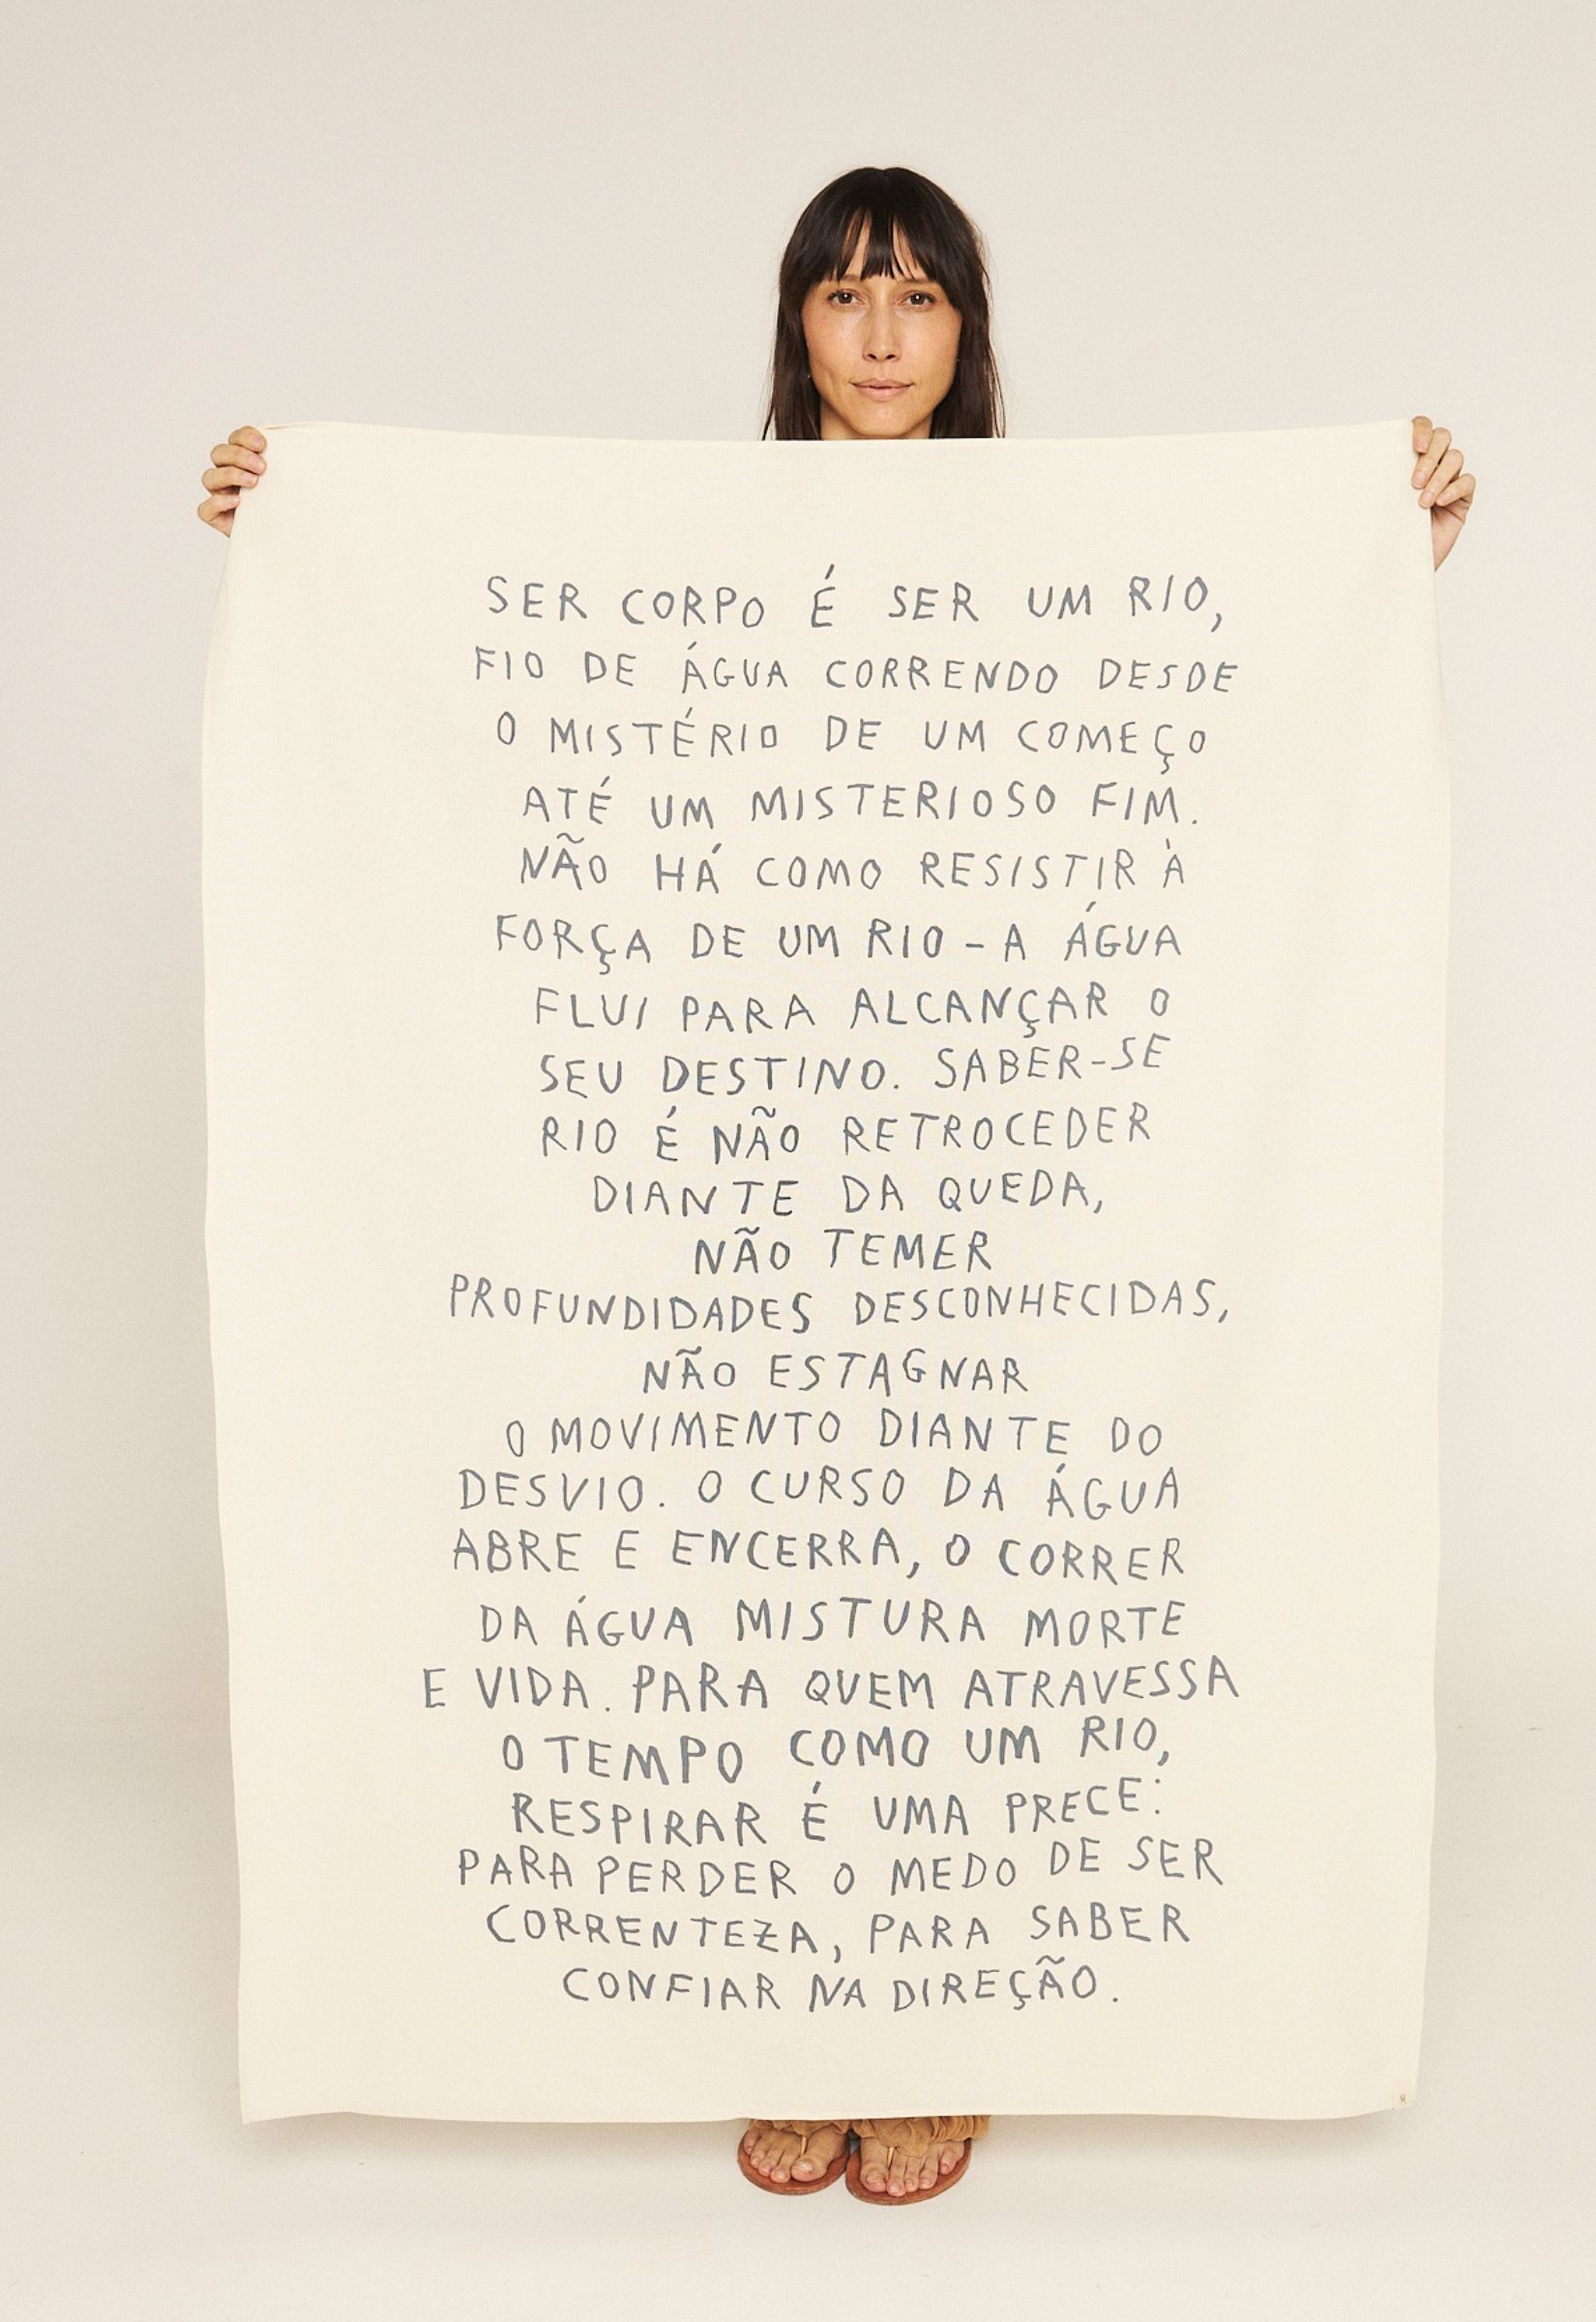 SER CORPO É SER UM RIO,
FIO DE ÁGUA CORRENDO DESDE
O MISTÉRIO DE UM COMEÇO
ATÉ UM MISTERIOSO FIM.
NÃO HÁ COMO RESISTIR À
FORÇA DE UM RIO - A ÁGUA
FLUI PARA ALCANÇAR O
SEU DESTINO. SABER-SE
RIO É NÃO RETROCEDER
DIANTE DA QUEDA,
NÃO TEMER
PROFUNDIDADES DESCONHECIDAS,
NÃO ESTAGNAR
O MOVIMENTO DIANTE DO
DESVIO. O CURSO DA ÁGUA
ABRE E ENCERRA, O CORRER
DA ÁGUA MISTURA MORTE
E VIDA. PARA QUEM ATRAVESSA
O TEMPO COMO UM RIO,
RESPIRAR É UMA PRECE:
PARA PERDER O MEDO DE SER
CORRENTEZA, PARA SABER
CONFIAR NA DIREÇÃO.